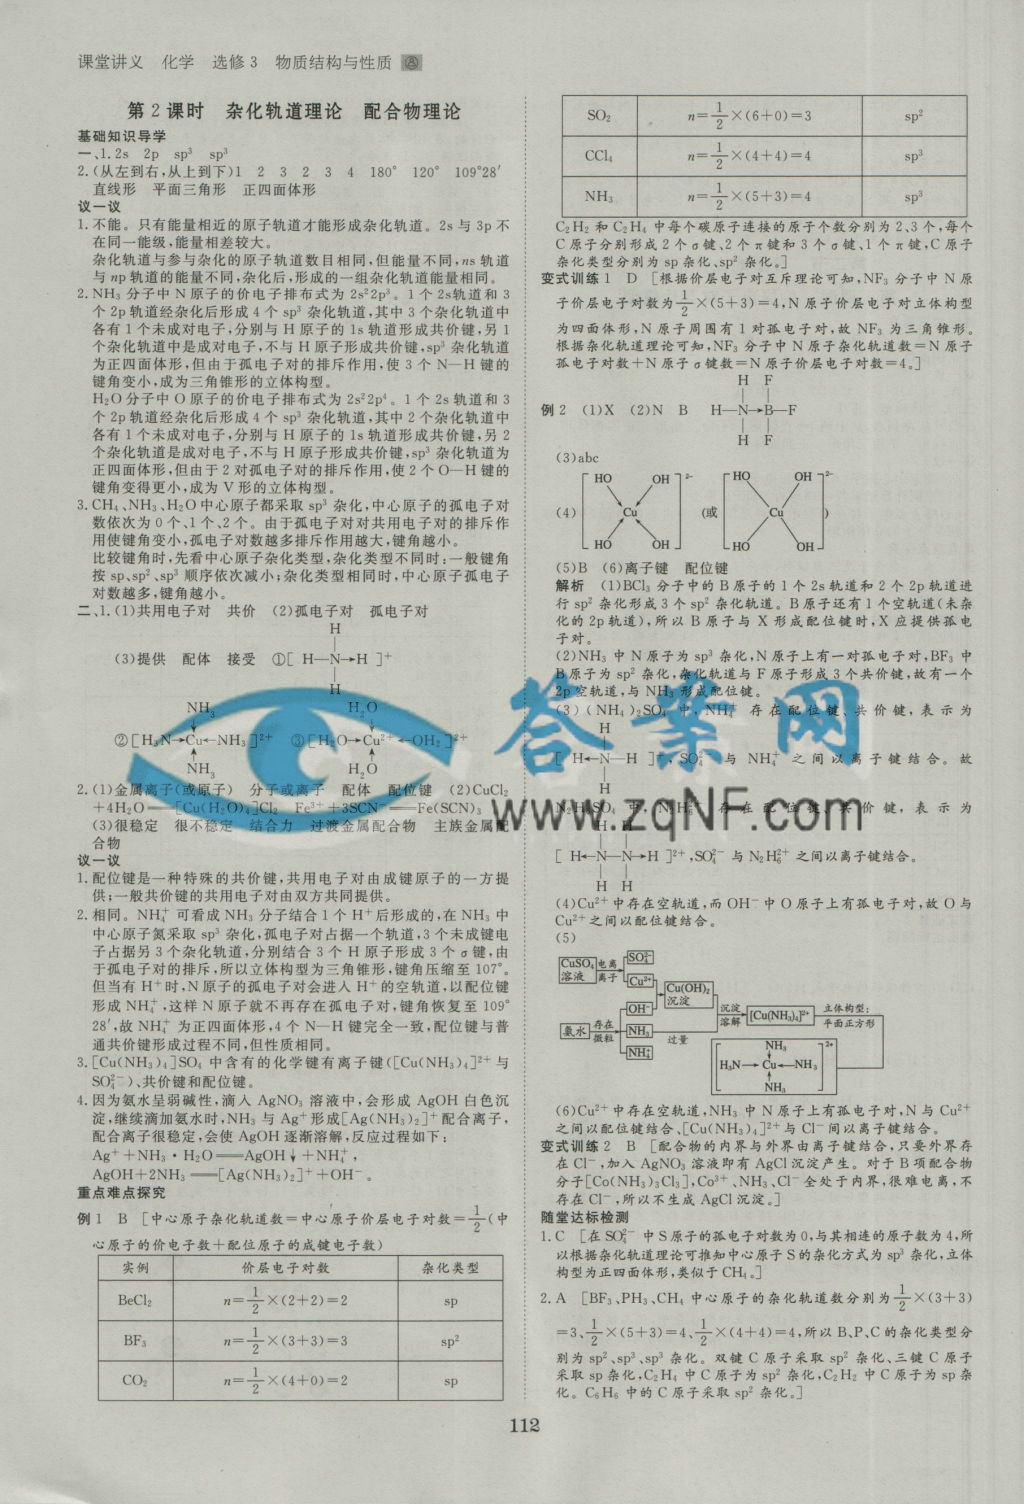 课堂讲义 化学 选修3 物质结构与性质 Ⓐ
第2课时 杂化轨道理论 配合物理论
基础知识导学
一、1.2s 2p sp³ sp³
2.(从左到右,从上到下)1 2 3 2 3 4 180° 120° 109°28′
直线形 平面三角形 正四面体形
议一议
1.不能。只有能量相近的原子轨道才能形成杂化轨道。2s与3p不
在同一能级,能量相差较大。
杂化轨道与参与杂化的原子轨道数目相同,但能量不同,ns轨道
与np轨道的能量不同,杂化后,形成的一组杂化轨道能量相同。
2.NH₃分子中N原子的价电子排布式为2s²2p³。1个2s轨道和3
个2p轨道经杂化后形成4个sp³杂化轨道,其中3个杂化轨道中
各有1个未成对电子,分别与H原子的1s轨道形成共价键,另1
个杂化轨道中是成对电子,不与H原子形成共价键,sp³杂化轨道
为正四面体形,但由于孤电子对的排斥作用,使3个N—H键的
键角变小,成为三角锥形的立体构型。
H₂O分子中O原子的价电子排布式为2s²2p⁴。1个2s轨道和3
个2p轨道经杂化后形成4个sp³杂化轨道,其中2个杂化轨道中
各有1个未成对电子,分别与H原子的1s轨道形成共价键,另2
个杂化轨道是成对电子,不与H原子形成共价键,sp³杂化轨道为
正四面体形,但由于2对孤电子对的排斥作用,使2个O—H键的
键角变得更小,成为V形的立体构型。
3.CH₄、NH₃、H₂O中心原子都采取sp³杂化,中心原子的孤电子对
数依次为0个、1个、2个。由于孤电子对对共用电子对的排斥作
用使键角变小,孤电子对数越多排斥作用越大,键角越小。
比较键角时,先看中心原子杂化类型,杂化类型不同时:一般键角
按sp、sp²、sp³顺序依次减小;杂化类型相同时,中心原子孤电子
对数越多,键角越小。
二、1.(1)共用电子对 共价 (2)孤电子对 孤电子对
H
(3)提供 配体 接受 ①[ H—N→H ]⁺
H
NH₃ H₂O
②[H₃N→Cu←NH₃]²⁺ ③[H₂O→Cu²⁺←OH₂]²⁺
NH₃ H₂O
2.(1)金属离子(或原子) 分子或离子 配体 配位键 (2)CuCl₂
+4H₂O══[Cu(H₂O)₄]Cl₂ Fe³⁺+3SCN⁻══Fe(SCN)₃
(3)很稳定 很不稳定 结合力 过渡金属配合物 主族金属配
合物
议一议
1.配位键是一种特殊的共价键,共用电子对由成键原子的一方提
供;一般共价键的共用电子对由双方共同提供。
2.相同。NH₄⁺可看成NH₃分子结合1个H⁺后形成的,在NH₃中
中心原子氮采取sp³杂化,孤电子对占据一个轨道,3个未成键电
子占据另3个杂化轨道,分别结合3个H原子形成3个σ键,由
于孤电子对的排斥,所以立体构型为三角锥形,键角压缩至107°。
但当有H⁺时,N原子的孤电子对会进入H⁺的空轨道,以配位键
形成NH₄⁺,这样N原子就不再存在孤电子对,键角恢复至109°
28′,故NH₄⁺为正四面体形,4个N—H键完全一致,配位键与普
通共价键形成过程不同,但性质相同。
3.[Cu(NH₃)₄]SO₄中含有的化学键有离子键([Cu(NH₃)₄]²⁺与
SO₄²⁻)、共价键和配位键。
4.因为氨水呈弱碱性,滴入AgNO₃溶液中,会形成AgOH白色沉
淀,继续滴加氨水时,NH₃与Ag⁺形成[Ag(NH₃)₂]⁺配合离子,
配合离子很稳定,会使AgOH逐渐溶解,反应过程如下:
Ag⁺+NH₃·H₂O══AgOH↓+NH₄⁺,
AgOH+2NH₃══[Ag(NH₃)₂]⁺+OH⁻。
重点难点探究
例1 B [中心原子杂化轨道数=中心原子价层电子对数=1/2(中
心原子的价电子数+配位原子的成键电子数)
实例 价层电子对数 杂化类型
BeCl₂ n=1/2×(2+2)=2 sp
BF₃ n=1/2×(3+3)=3 sp²
CO₂ n=1/2×(4+0)=2 sp
SO₂ n=1/2×(6+0)=3 sp²
CCl₄ n=1/2×(4+4)=4 sp³
NH₃ n=1/2×(5+3)=4 sp³
C₂H₂和C₂H₄中每个碳原子连接的原子个数分别为2、3个,每个
C原子分别形成2个σ键、2个π键和3个σ键、1个π键,C原子
杂化类型分别为sp杂化、sp²杂化。]
变式训练1 D [根据价层电子对互斥理论可知,NF₃分子中N原
子价层电子对数为1/2×(5+3)=4,N原子价层电子对立体构型
为四面体形,N原子周围有1对孤电子对,故NF₃为三角锥形。
根据杂化轨道理论可知,NF₃分子中N原子杂化轨道数=N原子
孤电子对数+N原子σ键数=N原子价层电子对数=4。]
H F
例2 (1)X (2)N B H—N→B—F
H F
(3)abc
HO OH 2- HO OH 2-
(4) Cu (或 Cu )
HO OH HO OH
(5)B (6)离子键 配位键
解析 (1)BCl₃分子中的B原子的1个2s轨道和2个2p轨道进
行sp²杂化形成3个sp²杂化轨道。B原子还有1个空轨道(未杂
化的2p轨道),所以B原子与X形成配位键时,X应提供孤电
子对。
(2)NH₃中N原子为sp³杂化,N原子上有一对孤电子对,BF₃中
B原子为sp²杂化,杂化轨道与F原子形成3个共价键,故有一个
2p空轨道,与NH₃形成配位键。
(3)(NH₄)₂SO₄中,NH₄⁺存在配位键、共价键,表示为
H
[ H←N—H ]⁺,SO₄²⁻与NH₄⁺之间以离子键结合。故
H
N₂H₆SO₄中,N₂H₆²⁺存在配位键、共价键,表示为
H H
[ H←N—N→H ]²⁺,SO₄²⁻与N₂H₆²⁺之间以离子键结合。
H H
(4)Cu²⁺中存在空轨道,而OH⁻中O原子上有孤电子对,故O与
Cu²⁺之间以配位键结合。
(5)
CuSO₄溶液 电离 离子 SO₄²⁻ Cu²⁺
Cu(OH)₂沉淀
氨水 存在 微粒 OH⁻ NH₃ NH₄⁺ 过量
沉淀 溶解 [Cu(NH₃)₄]²⁺ 立体构型: 平面正方形
NH₃ 2+
H₃N→Cu←NH₃
NH₃
(6)Cu²⁺中存在空轨道,NH₃中N原子上有孤电子对,N与Cu²⁺
之间以配位键结合、[Cu(NH₃)₄]²⁺与Cl⁻间以离子键结合。
变式训练2 B [配合物的内界与外界由离子键结合,只要外界存
在Cl⁻,加入AgNO₃溶液即有AgCl沉淀产生。对于B项配合物
分子[Co(NH₃)₃Cl₃],Co³⁺、NH₃、Cl⁻全处于内界,很难电离,不
存在Cl⁻,所以不生成AgCl沉淀。]
随堂达标检测
1.C [在SO₄²⁻中S原子的孤电子对数为0,与其相连的原子数为4,所
以根据杂化轨道理论可推知中心原子S的杂化方式为sp³杂化,立体
构型为正四面体形,类似于CH₄。]
2.A [BF₃、PH₃、CH₄中心原子的杂化轨道数分别为1/2×(3+3)
=3、1/2×(5+3)=4、1/2×(4+4)=4,所以B、P、C的杂化类型分
别为sp²、sp³、sp³杂化。双键C原子采取sp²杂化、三键C原子
采取sp杂化,C₂H₄中C原子为sp²杂化,C₂H₂中C原子为sp杂
化。C₆H₆中的C原子采取sp²杂化。]
112
答案网
www.zqNF.com